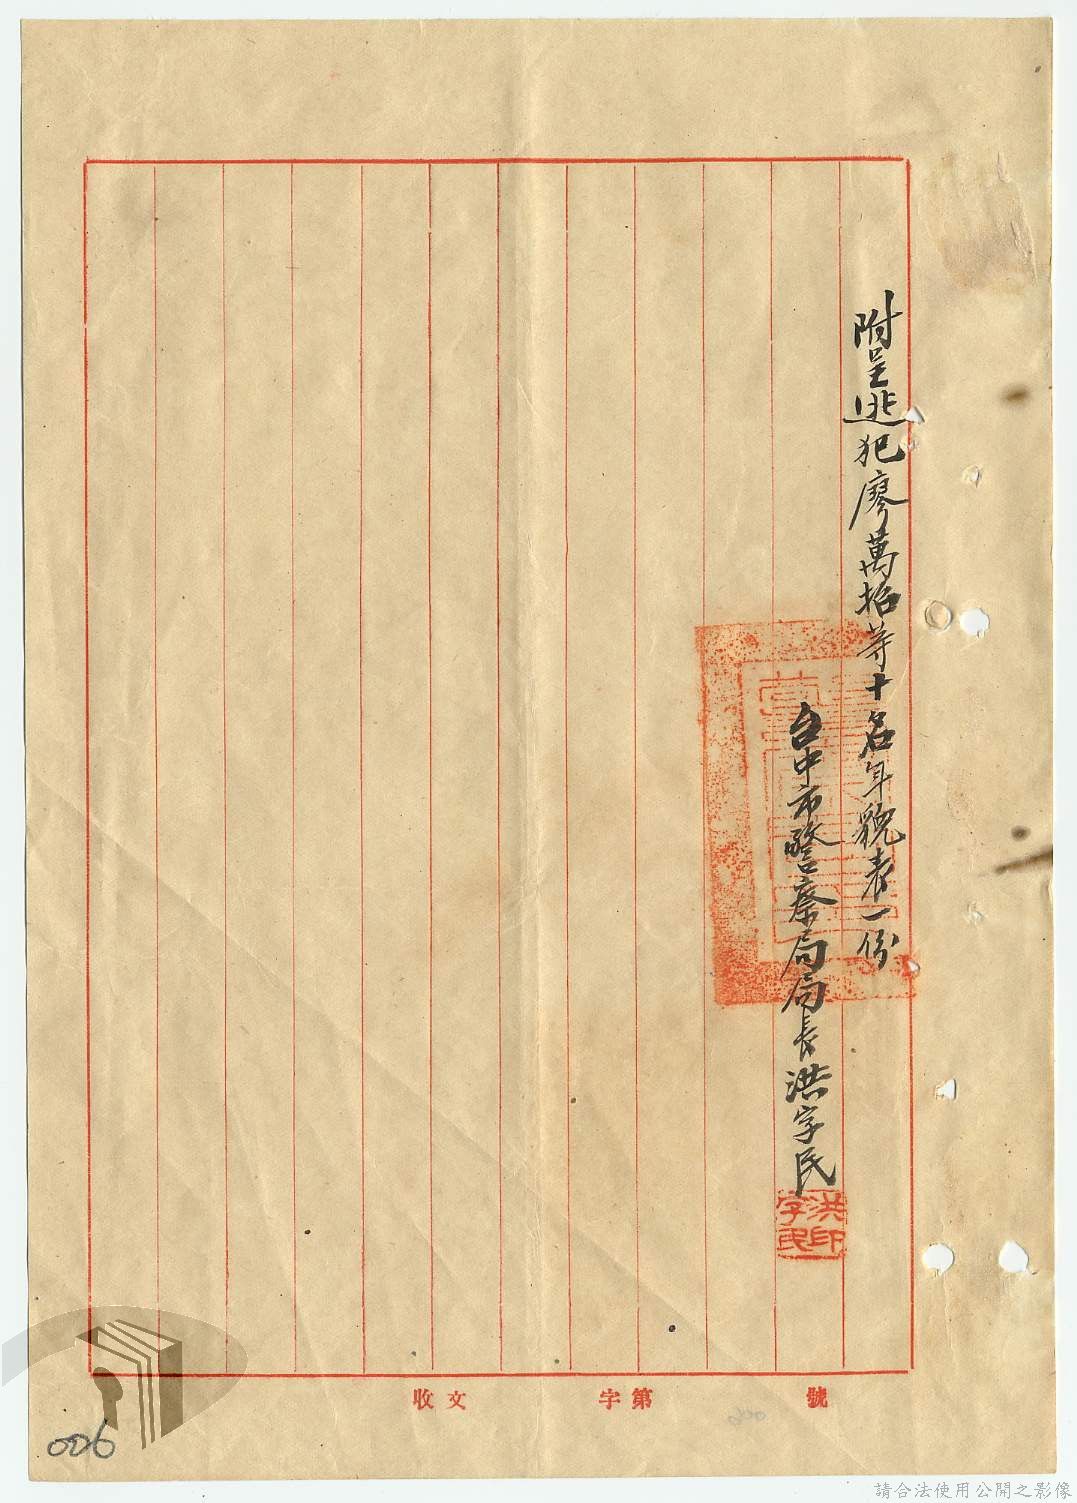 附呈逃犯廖萬抬等十名年貌表一份
台中市警察局局長洪字民
洪印
字民
收文 字第 號
006
請合法使用公開之影像